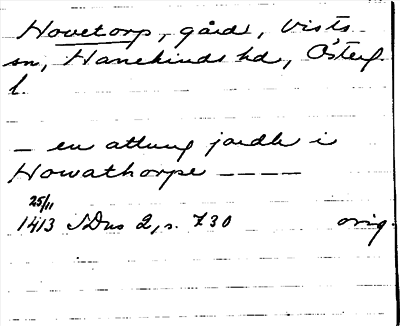 Hovetorp, gård, Vists
sn, Hanekinds hd, Österg.
l.
– en attung jordh i
Howathorpe – – – –
25/11
1413 SDns 2, s. 730 orig.